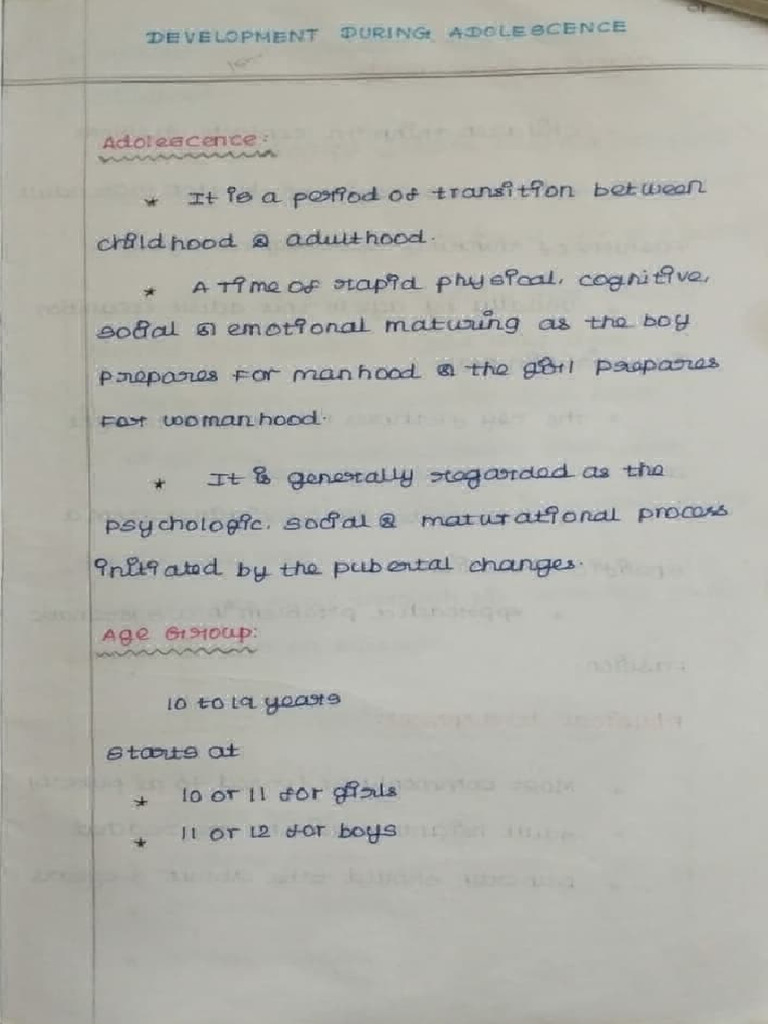 DEVELOPMENT DURING ADOLESCENCE
Adolescence:
* It is a period of transition between
childhood & adulthood.
* A time of rapid physical, cognitive,
social & emotional maturing as the boy
prepares for manhood & the girl prepares
for womanhood.
* It is generally regarded as the
psychologic, social & maturational process
initiated by the pubertal changes.
Age Group:
10 to 19 years
starts at
* 10 or 11 for girls
* 11 or 12 for boys